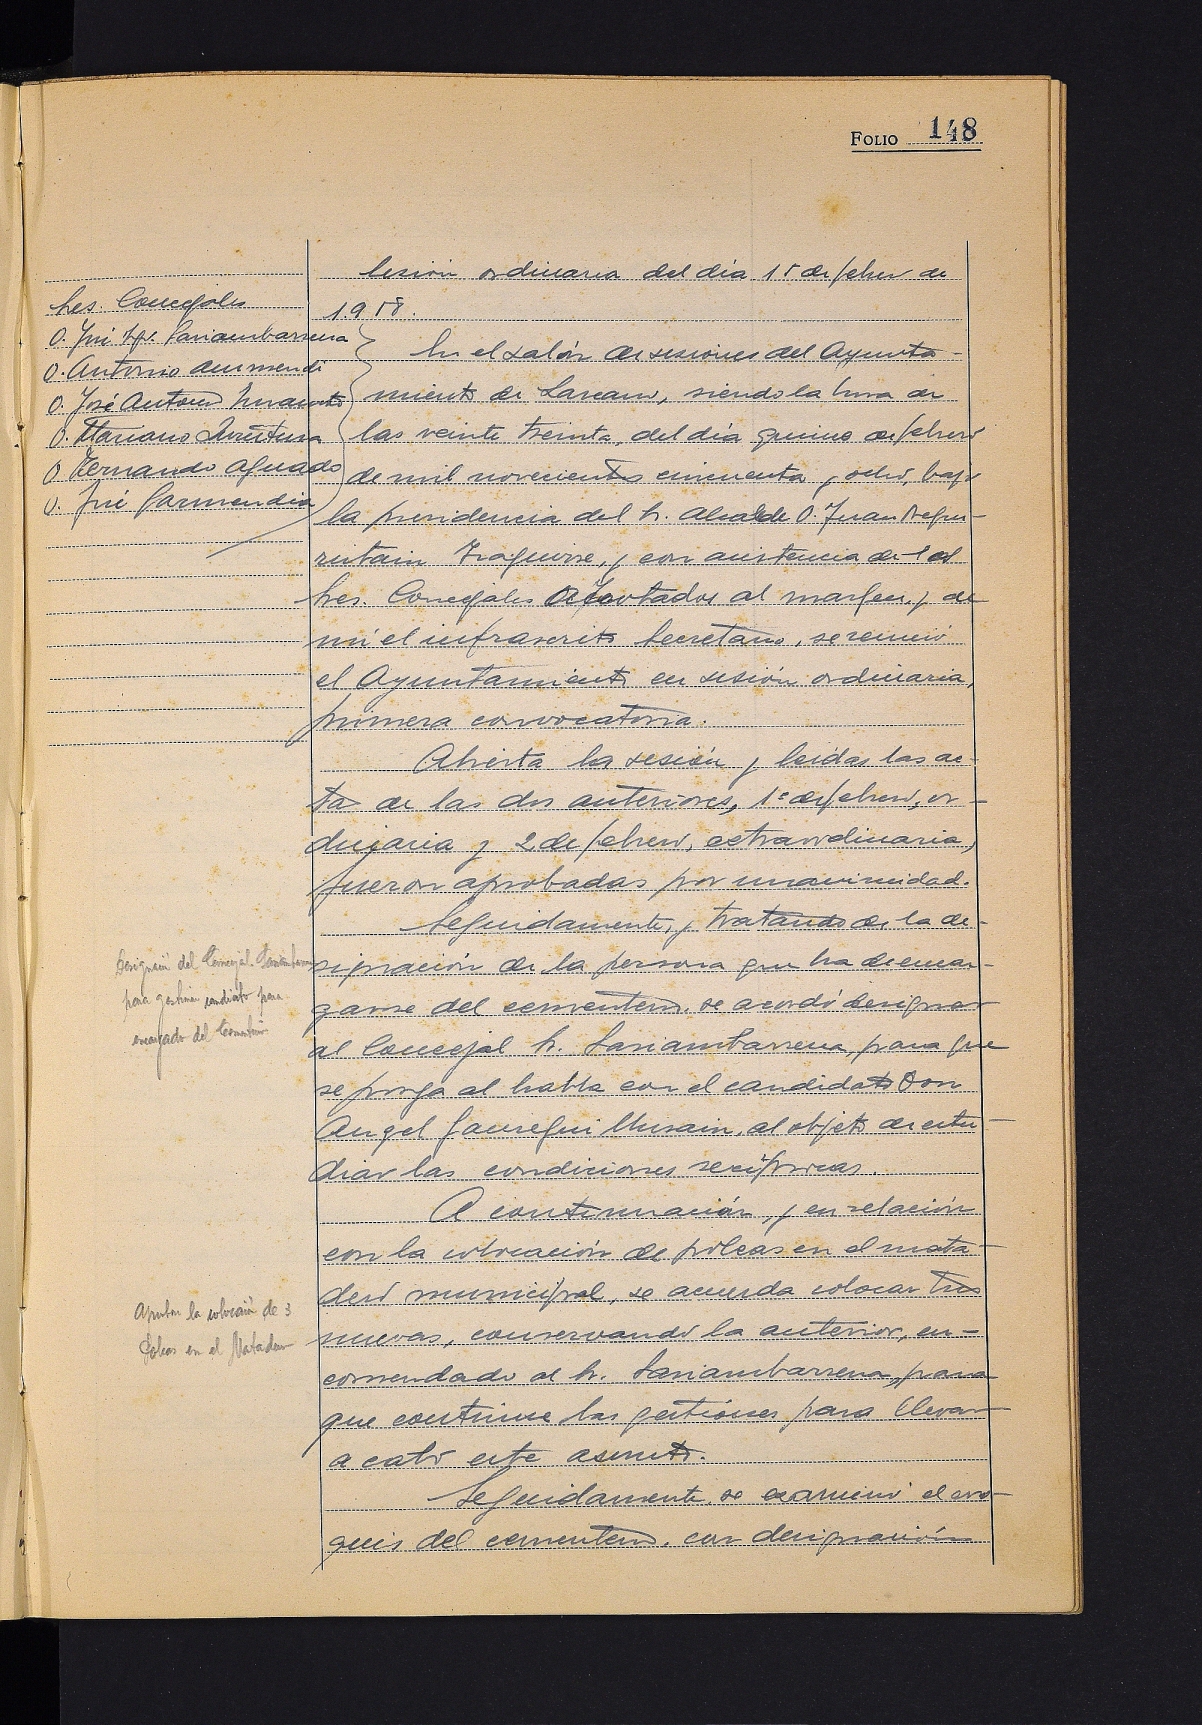 FOLIO 148
Sesión ordinaria del día 15 de febrero de
1958.
Sres. Concejales
D. José Sarriambarrena
D. Antonio Aurmendi
D. José Antonio
D. Mariano
D. Fernando Aguado
D. José Garmendia
En el salón de sesiones del Ayunta-
miento de Lazcano, siendo la hora de
las veinte treinta, del día quince de febrero
de mil novecientos cincuenta y ocho, bajo
la presidencia del Sr. Alcalde D. Juan Aegui-
rutain, y con asistencia de los
Sres. Concejales acotados al margen, y de
mi el infrascrito Secretario, se reunió
el Ayuntamiento en sesión ordinaria,
primera convocatoria.
Abierta la sesión y leídas las ac-
tas de las dos anteriores, 1º de febrero, or-
dinaria y 2 de febrero, extraordinaria,
fueron aprobadas por unanimidad.
Seguidamente, y tratando de la de-
signación de la persona que ha de encar-
garse del cementerio, se acordó designar
al Concejal Sr. Sarriambarrena, para que
se ponga al habla con el candidato Don
Angel Jauregui, al objeto de estu-
diar las condiciones recíprocas.
Designación del Concejal Sarriambarrena
para gestionar candidato para
encargado del Cementerio
A continuación, y en relación
con la colocación de poleas en el mata-
dero municipal, se acuerda colocar tres
nuevas, conservando la anterior, en-
comendado al Sr. Sarriambarrena, para
que continue las gestiones para llevar
a cabo este asunto.
Aprobar la colocación de 3
Poleas en el Matadero
Seguidamente, se examinó el cro-
quis del cementerio, con designación